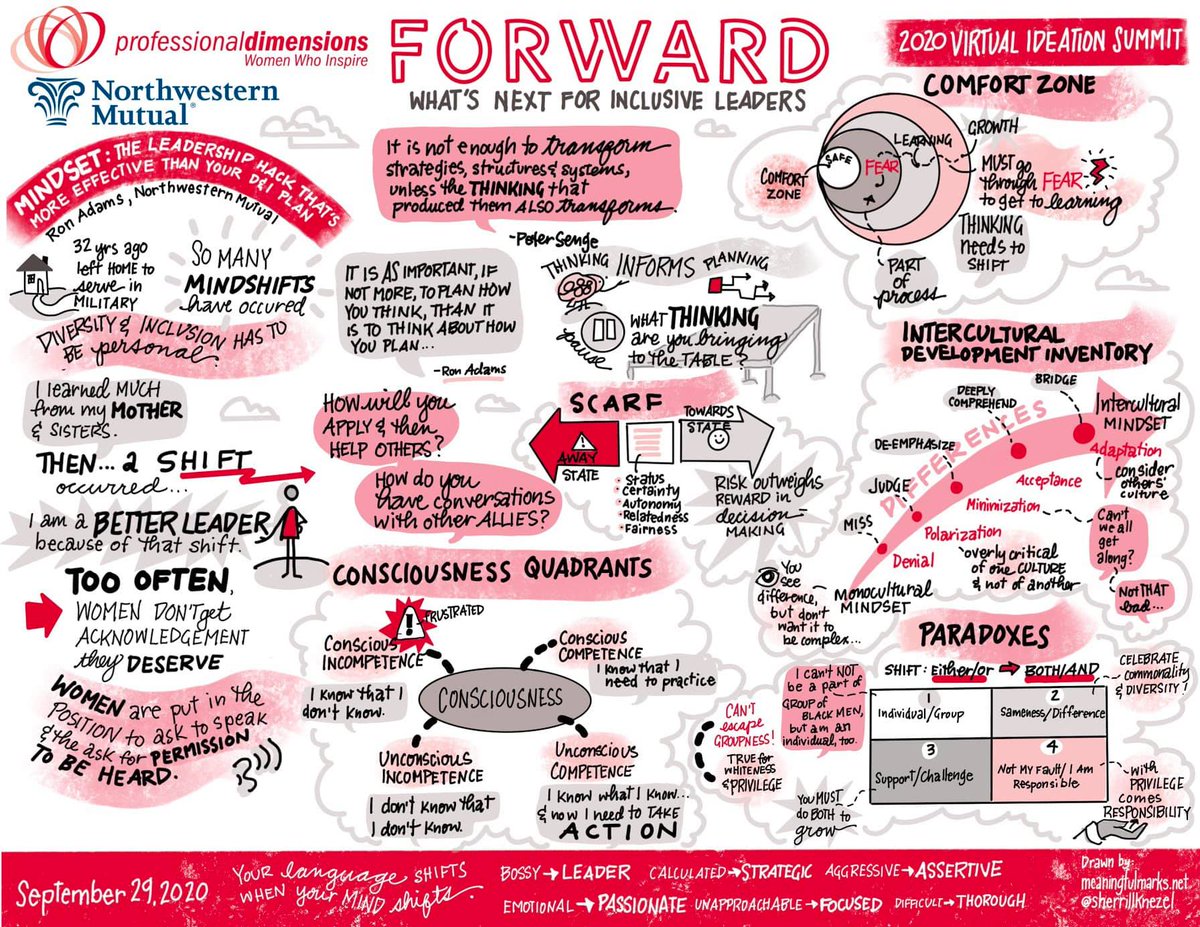 professionaldimensions
Women Who Inspire
Northwestern
Mutual®
FORWARD
WHAT'S NEXT FOR INCLUSIVE LEADERS
2020 VIRTUAL IDEATION SUMMIT
MINDSET: THE LEADERSHIP HACK THAT'S
MORE EFFECTIVE THAN YOUR D&I PLAN
Ron Adams, Northwestern Mutual
32 yrs ago
left HOME to
serve in
MILITARY
SO MANY
MINDSHIFTS
have occured
DIVERSITY & INCLUSION HAS TO
BE personal.
I learned MUCH
from my MOTHER
& SISTERS.
THEN... a SHIFT
occurred...
I am a BETTER LEADER
because of that shift.
TOO OFTEN,
WOMEN DON'T get
ACKNOWLEDGEMENT
they DESERVE
WOMEN are put in the
POSITION to ask to speak
& the ask for PERMISSION
TO BE HEARD.
It is not enough to transform
strategies, structures & systems,
unless the THINKING that
produced them ALSO transforms.
-Peter Senge
IT IS AS IMPORTANT, IF
NOT MORE, TO PLAN HOW
YOU THINK, THAN IT
IS TO THINK ABOUT HOW
YOU PLAN...
-Ron Adams
THINKING INFORMS PLANNING
pause
WHAT THINKING
are you bringing
to the TABLE?
HOW will you
APPLY & then
HELP OTHERS?
How do you
have conversations
with other ALLIES?
SCARF
AWAY
STATE
TOWARDS
STATE
• Status
• Certainty
• Autonomy
• Relatedness
• Fairness
RISK OUTWEIGHS
REWARD in
decision-
MAKING
CONSCIOUSNESS QUADRANTS
! FRUSTRATED
Conscious
INCOMPETENCE
I know that I
don't know.
Conscious
COMPETENCE
I know that I
need to practice
CONSCIOUSNESS
Unconscious
INCOMPETENCE
I don't know that
I don't know.
Unconscious
COMPETENCE
I know what I know...
& now I need to TAKE
ACTION
COMFORT ZONE
SAFE
FEAR
LEARNING
GROWTH
COMFORT
ZONE
MUST go
through FEAR
to get to learning
THINKING
needs to
SHIFT
PART
OF
process
INTERCULTURAL
DEVELOPMENT INVENTORY
DIFFERENCES
MISS
JUDGE
DE-EMPHASIZE
DEEPLY
COMPREHEND
BRIDGE
Intercultural
MINDSET
Adaptation
consider
others'
culture
Acceptance
Minimization
Can't
we all
get
along?
Not THAT
bad...
Polarization
overly critical
of one CULTURE
& not of another
Denial
Monocultural
MINDSET
You
see
difference,
but don't
want it to
be complex...
PARADOXES
SHIFT: Either/or → BOTH/AND
CELEBRATE
commonality
& DIVERSITY!
1
Individual/Group
2
Sameness/Difference
3
Support/Challenge
4
Not My Fault/I Am
Responsible
I can't NOT
be a part of
GROUP of
BLACK MEN,
but am an
individual, too.
CAN'T
escape
GROUPNESS!
TRUE for
WHITENESS
& PRIVILEGE
YOU MUST
do BOTH to
grow
with
PRIVILEGE
comes
RESPONSIBILITY
September 29, 2020
YOUR language SHIFTS
WHEN your MIND shifts.
BOSSY → LEADER CALCULATED → STRATEGIC AGGRESSIVE → ASSERTIVE
EMOTIONAL → PASSIONATE UNAPPROACHABLE → FOCUSED DIFFICULT → THOROUGH
Drawn by:
meaningfulmarks.net
@sherrillknezel